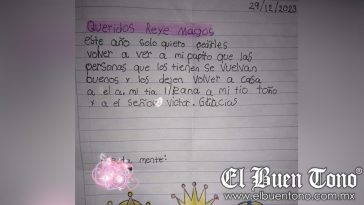 29/12/2023
Queridos Reye Magos
Este año solo quiero pedirles
volver a ver a mi papito que las
personas que los tienen se vuelvan
buenos y los dejen volver a casa
a el a. mi tia Iliana a mi tio toño
y a el señor Victor. Gracias
mente:
El Buen Tono
www.elbuentono.com.mx